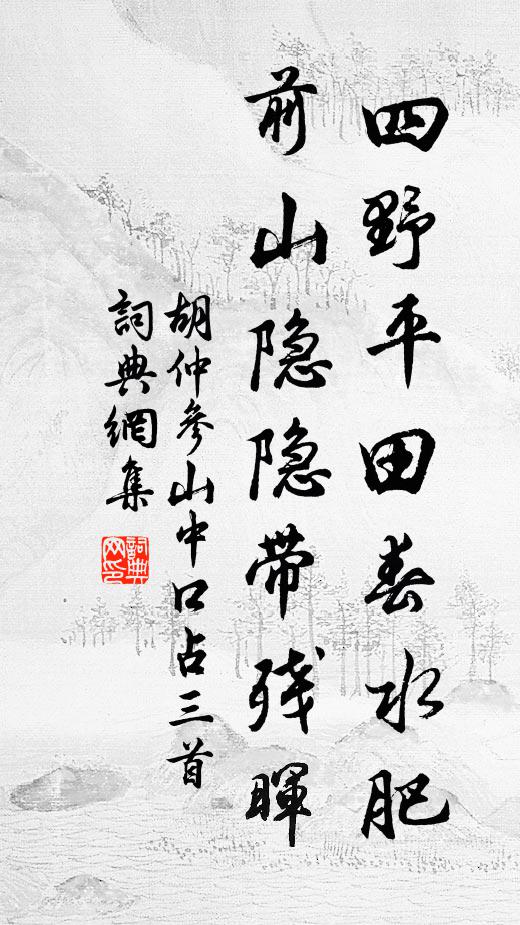 四野平田春水肥
前山隐隐带残暉
胡仲參山中口占三首
詞典網集
詞典网印